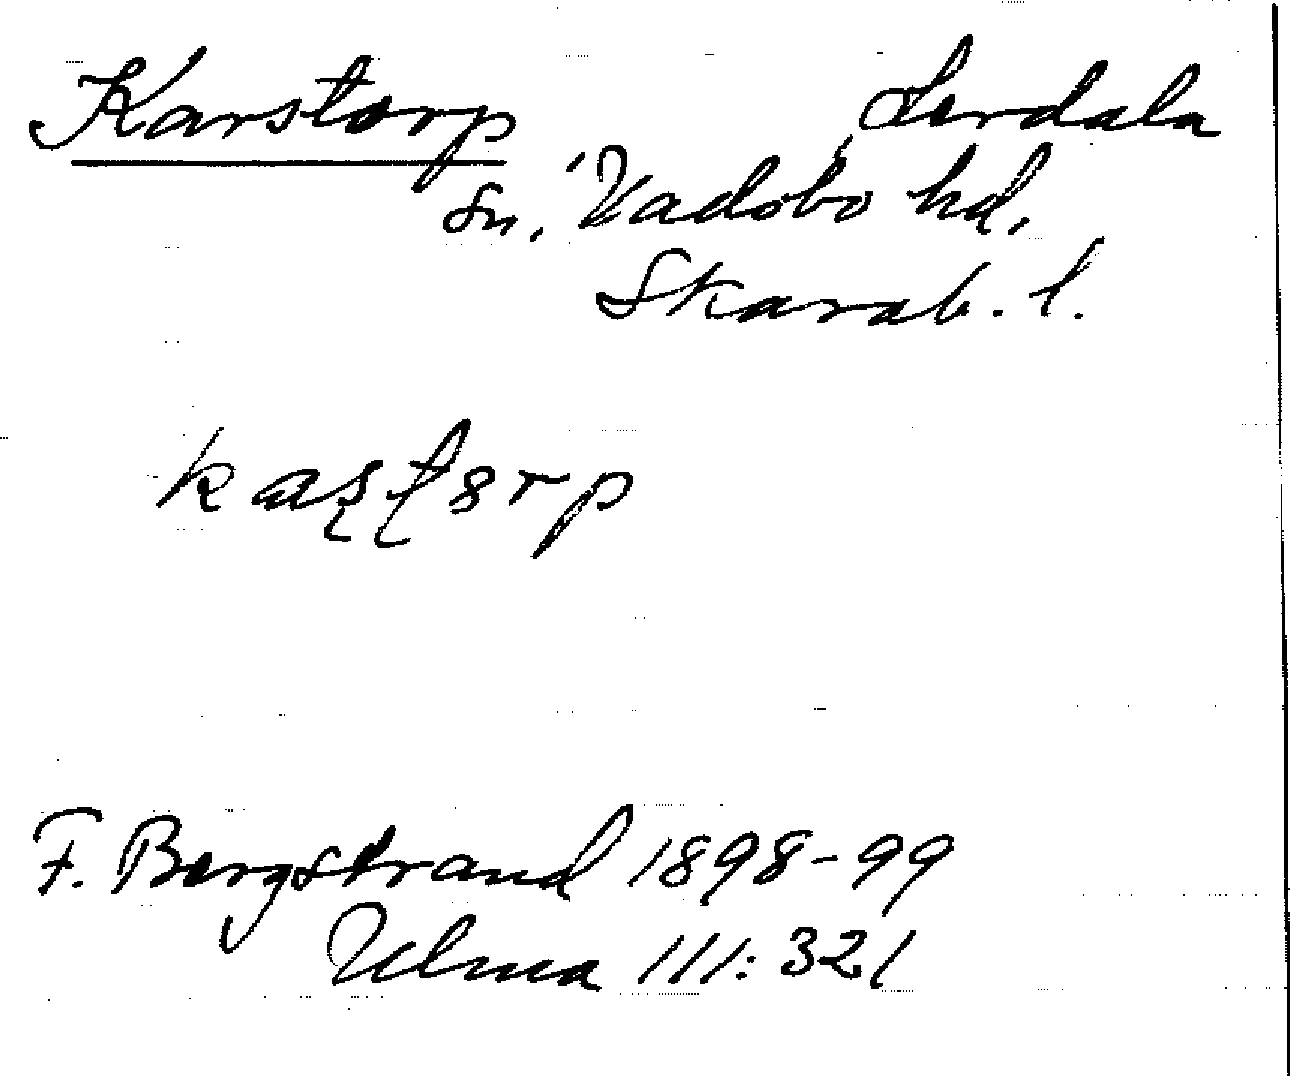 Karstorp Lerdala
sn, Vadsbo hd,
Skarab. l.
kaʂʈɵrp
F. Bergstrand 1898-99
Ulma 111:321